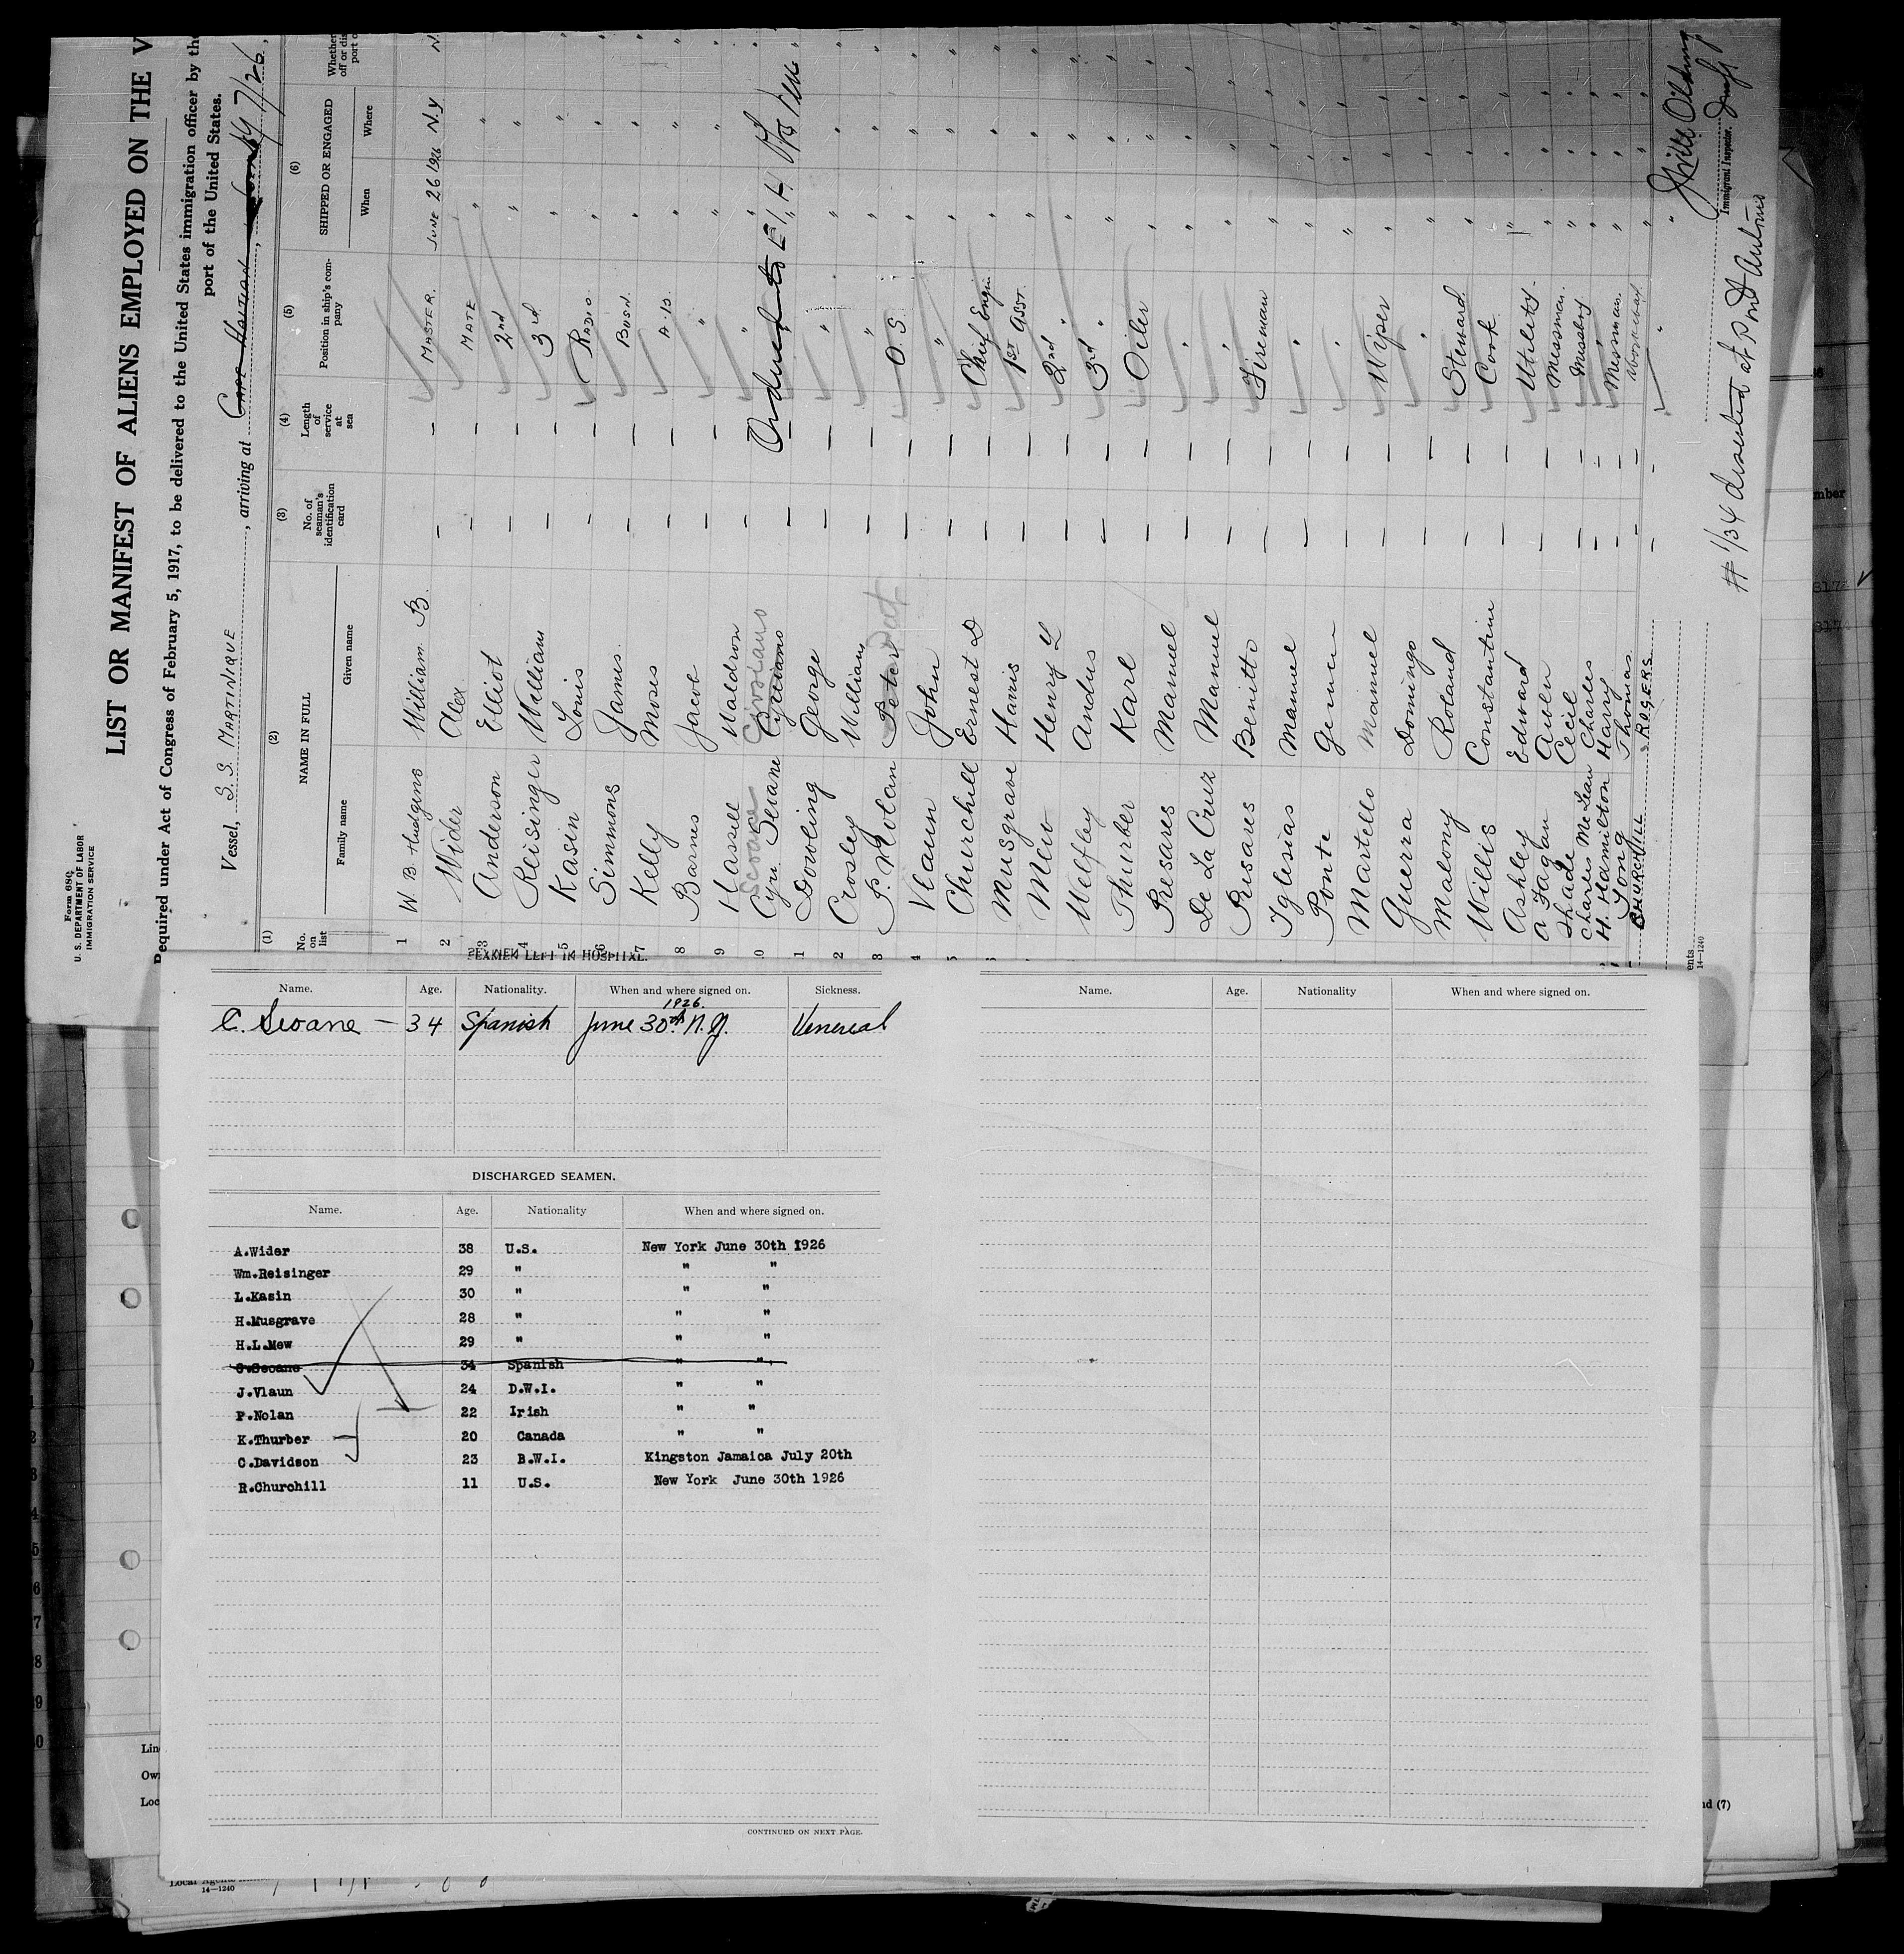 Form 680
U. S. DEPARTMENT OF LABOR
IMMIGRATION SERVICE
LIST OR MANIFEST OF ALIENS EMPLOYED ON THE V
Required under Act of Congress of February 5, 1917, to be delivered to the United States immigration officer by the
port of the United States.
Vessel, S.S. MARTINIQUE, arriving at CAPE HAITIAN, 7/26,
(1) (2) (3) (4) (5) (6)
No. on list
NAME IN FULL
Family name Given name
No. of seaman's identification card
Length of service at sea
Position in ship's company
SHIPPED OR ENGAGED
When Where
1 W. B. Hudgens William B. — — MASTER. JUNE 26 1926 N.Y N.
2 Wider Alex — — MATE " "
3 Anderson Elliot — — 2nd " "
4 Reisinger William — — 3rd " "
5 Kasin Louis — — RADIO " "
6 Simmons James — — BOSN. " "
7 Kelly Moses — — A.B. " "
8 Barnes Jacob — — " " "
9 Hassell Waldron — — " " "
0 Cyri Seoane Cypriano — — Ordered to
Seoane
1 Dowling George — — " " "
2 Crosley William — — " " "
3 P. Nolan Peter Pat — — O.S. " "
4 Vlaun John — — " " "
5 Churchill Ernest D — — Chief Engin " "
Musgrave Harris — — 1st ASST. " "
Mew Henry L — — 2nd " " "
Welfley Andus — — 3rd " " "
Thurber Karl — — Oiler " "
Presares Manuel — — " " "
De La Cruz Manuel — — " " "
Presares Benitto — — Fireman " "
Iglesias Manuel — — " " "
Ponte — — " " "
Martello Manuel — — Wiper " "
Guerra Domingo — — " " "
Malony Roland — — Steward " "
Willis Constantin — — Cook " "
Ashley Edward — — Utility " "
A Fagan — — Messman. " "
Shade Cecil — — Messboy " "
Charles McLean Charles — — " " "
H. Hamilton Harry — — Messman. " "
Long Thomas — — " "
CHURCHILL ROGERS — — " "
Immigrant Inspector.
#1/34 deserted at Port Antonio
14—1240
SEAMEN LEFT IN HOSPITAL.
Name. Age. Nationality. When and where signed on. Sickness.
C. Seoane — 34 Spanish June 30th 1926. N.Y. Venereal
DISCHARGED SEAMEN.
Name. Age. Nationality When and where signed on.
A.Wider 38 U.S. New York June 30th 1926
Wm.Reisinger 29 " " "
L.Kasin 30 " " "
H.Musgrave 28 " " "
H.L.Mew 29 " " "
C.Seoane 34 Spanish " "
J.Vlaun 24 D.W.I. " "
P.Nolan 22 Irish " "
K.Thurber 20 Canada " "
C.Davidson 23 B.W.I. Kingston Jamaica July 20th
R.Churchill 11 U.S. New York June 30th 1926
CONTINUED ON NEXT PAGE.
Name. Age. Nationality When and where signed on.
14—1240